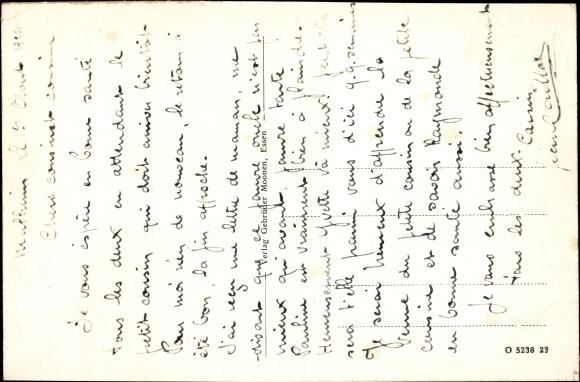 Mulheim le 5 Août 1924
Chers cousin et cousine
Je vous espère en bonne santé
tous les deux en attendant le
petit cousin qui doit arriver bientôt.
Pour moi rien de nouveau, le retour a
été bon, la fin approche.
J'ai reçu une lettre de maman, me
disant que ce pauvre oncle n'est pas
mieux qu'avant, pauvre tante
Pauline est vraiment bien à plaindre.
Heureusement Yvette va mieux! peut être
sera t'elle parmi vous d'ici q.q. semaines
Je serai heureux d'apprendre la
venue du petit cousin ou de la petite
cousine et de savoir Raymonde
en bonne santé aussi.
Je vous embrasse bien affectueusement
tous les deux. Cousin
Jean
Verlag Gebrüder Moonen, Essen
O 5238 23